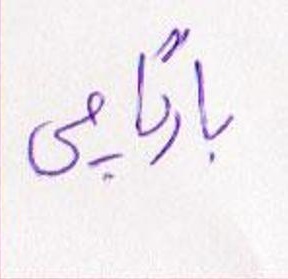 بارگاهی